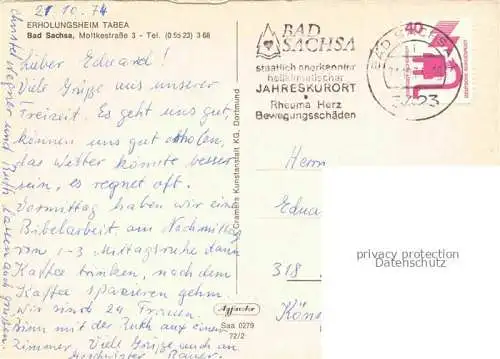 21.10.74
ERHOLUNGSHEIM TABEA
Bad Sachsa, Moltkestraße 3 - Tel. (0 55 23) 3 68
Lieber Eduard!
Viele Grüße aus unserer
Freizeit. Es geht uns gut
können uns gut erholen,
das Wetter könnte besser
sein, es regnet oft.
Vormittag haben wir ein
Bibelarbeit am Nachmittag
von 1-3 Mittagsruhe dann
Kaffee trinken, nach dem
Kaffee spazieren gehn.
Wir sind 24 Frauen.
Binn mit der Ruth auf einem
Zimmer. Viele Grüße auch an
Geschwister Bauer.
und Ruth lassen auch grüßen.
Cramers Kunstanstalt KG, Dortmund
BAD
SACHSA
staatlich anerkannter
heilklimatischer
JAHRESKURORT
Rheuma Herz
Bewegungsschäden
BAD SACHSA
3423
40
Herrn
Edua
318
privacy protection
Datenschutz
Saa 0279
72/2